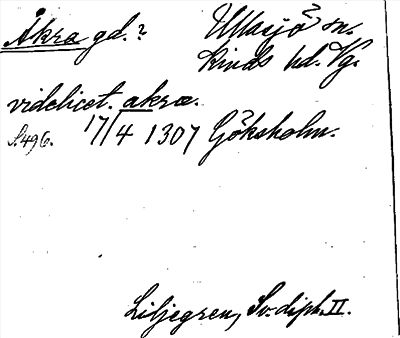 Åkra gd.? Ullasjö sn.
Kinds hd. Vg.
videlicet. akra.
S. 496. 17/4 1307 Göksholm.
Liljegren, Sv. dipl. II.